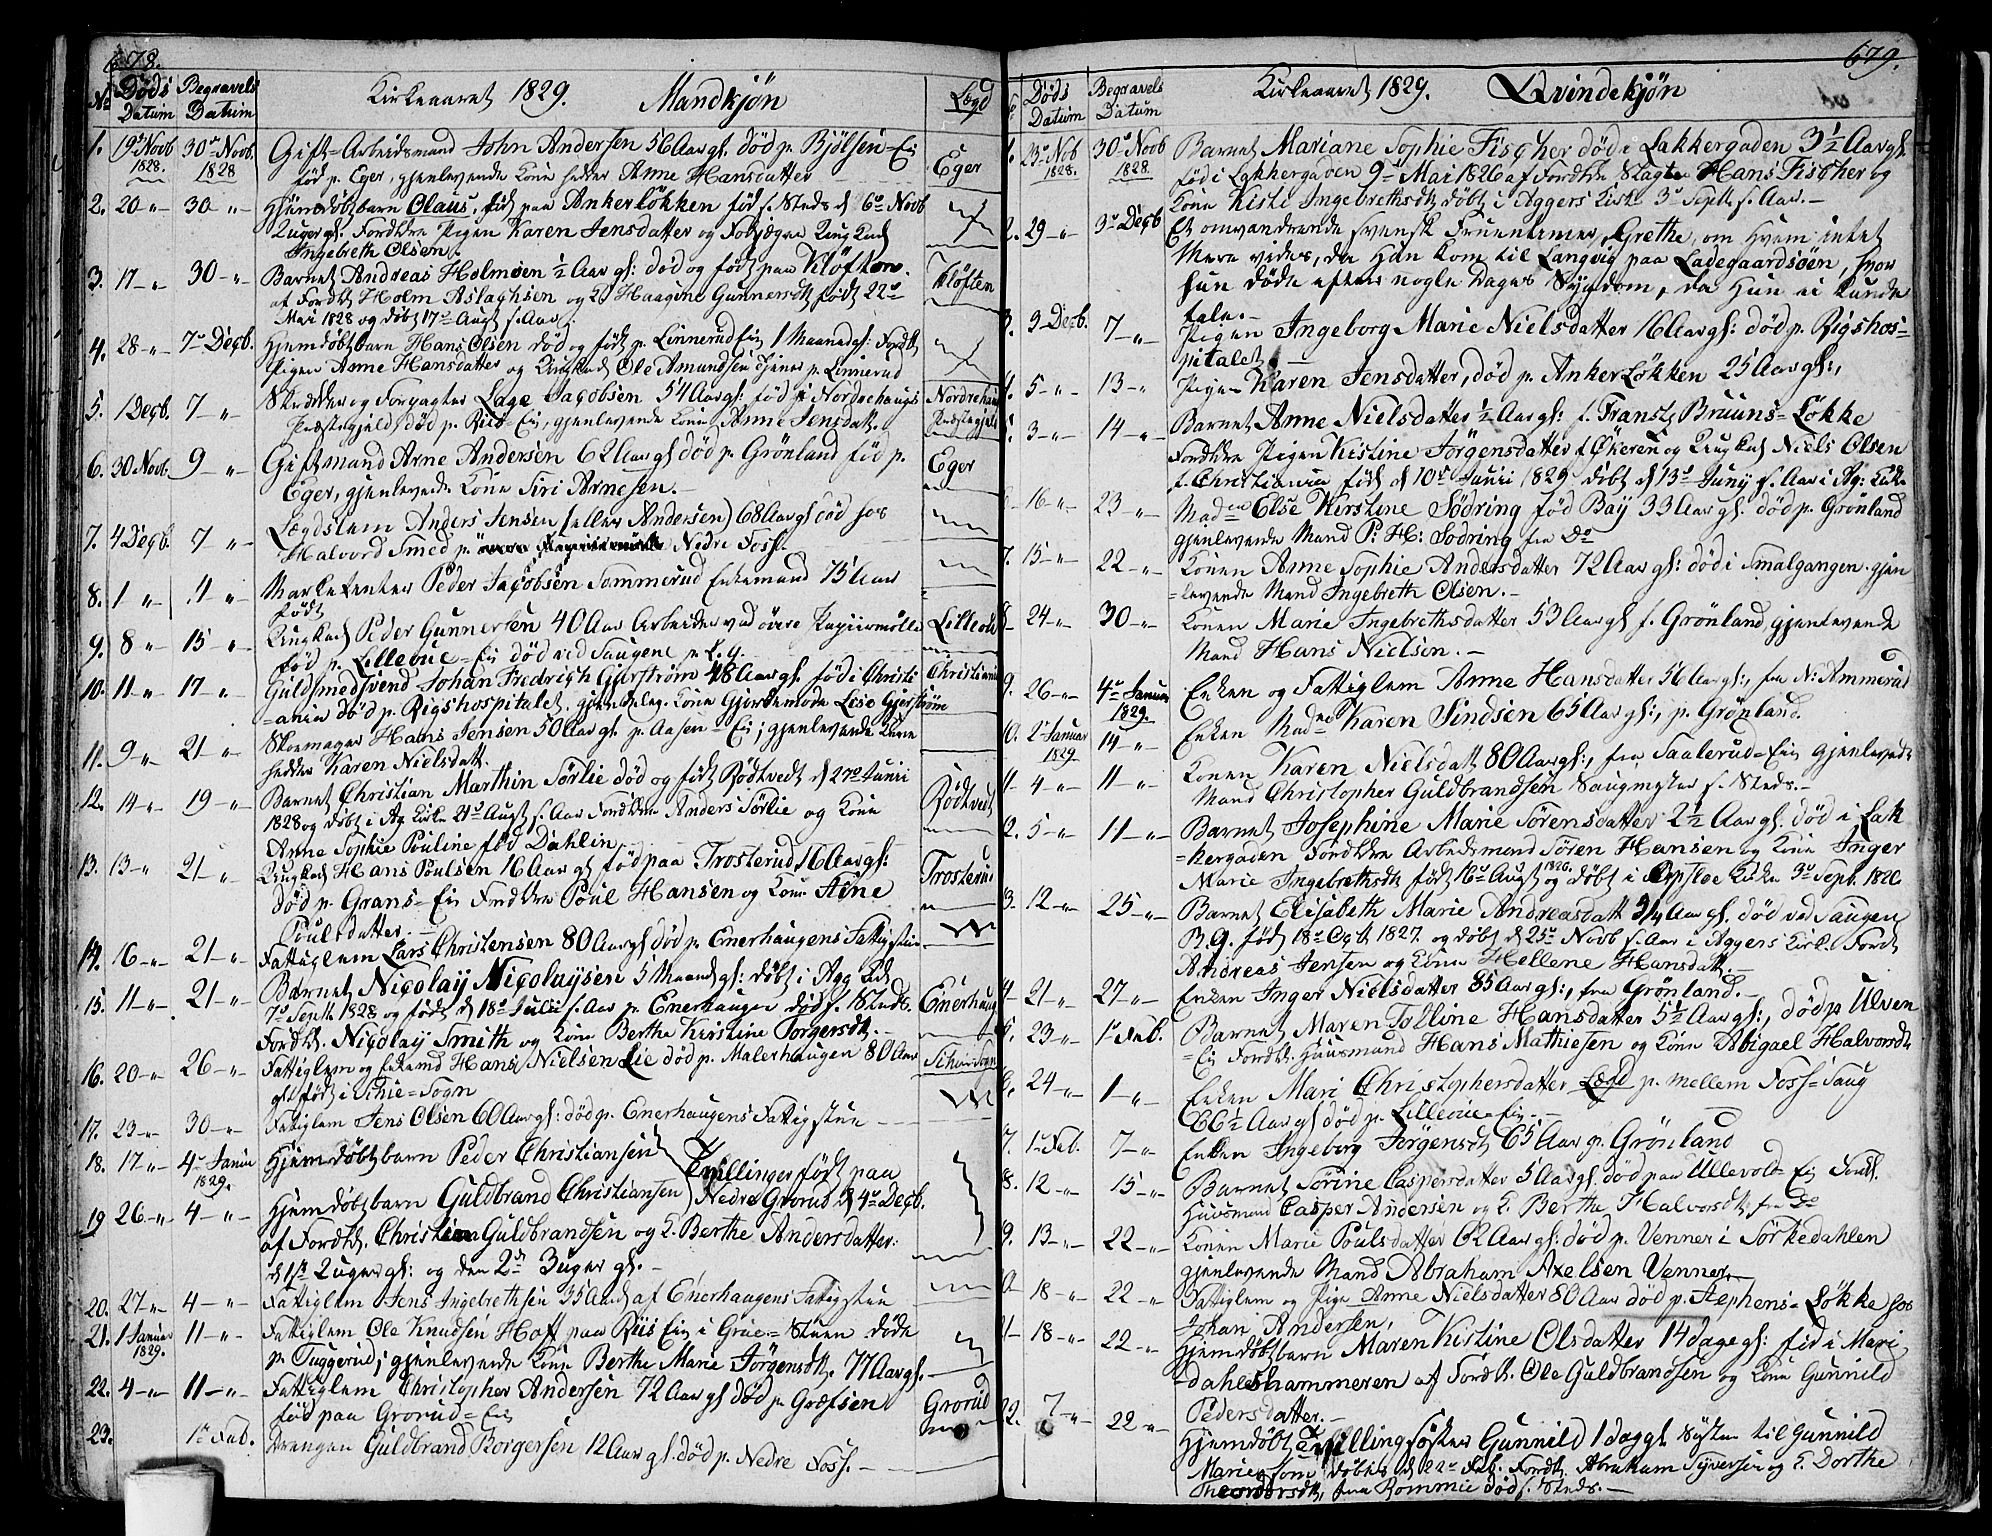 678.
No Døds Datum Begravels Datum Kirkeaaret 1829. Mandkjøn Lægd
1. 19de Novb 1828. 30te Novb. 1828 Gift-Arbeidsmand John Andersen 56 Aar gl. død p. Bjølsen-Ei
født p. Eger, gjenlevende Kone heder Anne Hansdatter Eger
2. 20 -"- 30 -"- Hjemdøbt barn Olaus, født paa Ankerløkken fød s. Steds d 6te Novb
Uger gl. Forældre Pigen Karen Jensdatter og Ungkarl
Ingebreth Olsen.
3. 17 -"- 30 -"- Barnet Andreas Holmsen ½ Aar gl: død og født paa Kløften. Kløften
af Forældre Holm Aslaghsen og K Haagine Gunnersdt født 22de
Mai 1828 og døbt 17de Augt s. Aar.
4. 28 -"- 7de Decb. Hjemdøbt barn Hans Olsen død og født p. Linnerud Ei 1 Maaned gl: Foræld.
Pigen Anne Hansdatter og Ungkarl Ole Amundsen tjener p. Linnerud
5. 1 Decb. 7 -"- Skredder og Forpagter Lage Jacobsen 54 Aar gl: født i Nordrehougs Nordrehou
Præstegjeld, død p. Riis-Ei, gjenlevende Kone Anne Jensdatt. Præstegjeld
6. 30 Novb. 9 -"- Gift mand Arne Andersen 62 Aar gl død p. Grønland fød p. Eger
Eger, gjenlevende Kone Siri Arnesen.
7. 4 Decb. 7 -"- Lægdslem Anders Jensen (eller Andersen) 68 Aar gl død hos
Halvord Smed p. Nedre Foss.
8. 1 -"- 11 -"- Marketenter Peder Jacobsen Sommerud Enkemand 75 Aar
født
9. 8 -"- 15 -"- Ungkarl Peder Gunnersen 40 Aar Arbeider ved øvre Papiirmølle Lillevd
fød p. Lillevue-Ei død ved Saugene
10. 11 -"- 17 -"- Guldsmedsvend Johan Fredrigh Gjerstrøm 48 Aar gl. født i Christi Christiania
=ania død p. Rigshospitalet, gjenleve. Kone Gjordemode Lise Gjerstrøm
11. 9 -"- 21 -"- Skoemager Hans Jensen 50 Aar gl p. Aasen-Ei; gjenlevende Kone
hedder Karen Nielsdatt.
12. 14 -"- 19 -"- Barnet Christian Marthin Sørlie død og født Rødtvedt d 27de Junii Rødtvedt
1828 og døbt i Ag Kirke 24de Augt s. Aar Forældre Anders Sørlie og Kone
Anne Sophie Pouline fød Dahlin
13. 13 -"- 21 -"- Ungkarl Hans Poulsen 16 Aar gl født paa Trosterud, 16 Aar gl: Trosterud
død p. Grans-Ei Forældre Poul Hansen og Kone Stine
Poulsdatter.
14. 16 -"- 21 -"- Fattiglem Lars Christensen 80 Aar gl død p. Enerhaugens Fattigstue
15. 11 -"- 21 -"- Barnet Nicolay Nicolaysen 5 Maaned gl: døbt i Agg Kirk Enerhaug
7de Septb 1828 og født d 18de Julii s. Aar p. Enerhaugen død s. Steds
Forældre Nicolay Smith og Kone Berthe Kirstine Torgersdt.
16. 20 -"- 26 -"- Fattiglem og Enkemd Hans Nielsen Lie død p. Malerhaugen 80 Aar
gl. født i Schie-Sogn
17. 23 -"- 30 -"- Fattiglem Jens Olsen 60 Aar gl: død p. Enerhaugens Fattigstue
18. 17 -"- 4de Janu 1829. Hjemdøbt barn Peder Christiansen Tvillinger født paa
19 26 -"- 4 -"- Hjemdøbt barn Guldbrand Christiansen Nedre Grorud d 4de Decb.
af Forældre Christian Guldbrandsen og K. Berthe Andersdatter.
d 1ste 2 Uger gl: og den 2den 3 uger gl.
20. 27 -"- 4 -"- Fattiglem Jens Ingebrethsen 35 Aar af Enerhaugens Fattigstue
21. 1 Januar 1829. 11 -"- Fattiglem Ole Knudsen Hoff paa Riis Ei i Grue-Stuen døde
p. Tuggerud; gjenlevende Kone Berthe Marie Jørgensdt. 77 Aar gl.
22. 4 -"- 11 -"- Fattiglem Christopher Andersen 72 Aar gl død p. Græfsen Grorud
født paa Grorud-Ei
23. 1ste Feb. Drengen Guldbrand Borgersen 12 Aar gl. død p. Nedre Foss.
679.
Døds Datum Begravels Datum Kirkeaaret 1829. Qvindekjøn
1. 23de Nob 1828. 30te Novb 1828. Barnet Mariane Sophie Fischer død i Lakkergaden 3½ Aar gl
fød i Lakkergaden 9de Mai 1826 af Forældre Slagter Hans Fischer og
Kone Kisti Ingebrethsdt døbt i Aggers Kirke 3de Septb s. Aar.
2. 29 -"- 3de Decb Et omvandrende svensk Fruentimer, Grethe, om hvem intet
mere vides, da hun kom til Langvig paa Ladegaardsøen, hvor
hun døde efter nogle Dages Sygdom, da hun ei kunde
tale.
3. 3 Decb. 7 -"- Pigen Ingeborg Marie Nielsdatter 16 Aar gl: død p. Rigshos-
pitalet
4. 5 -"- 13 -"- Pigen Karen Jensdatter, død p. Anker Løkken 25 Aar gl:,
5. 3 -"- 14 -"- Barnet Anne Nielsdatter ½ Aar gl: f. Frantz Bruuns-Løkke
Forældre Pigen Kistine Jørgensdatter f Økeren og Ungkarl Niels Olsen
f. Christiania født d 10de Junii 1829 døbt d 13de Juny s. Aar i Ag: Kirke
6. 16 -"- 23 -"- Madme Else Kirstine Sødring fød Bay 33 Aar gl: død p. Grønland
gjenlevende Mand P: H: Sødring fra Do
7. 15 -"- 22 -"- Konen Anne Sophie Andersdatter 72 Aar gl: død i Smalgangen gjen
=levende Mand Ingebreth Olsen.
8. 24 -"- 30 -"- Konen Marie Ingebrethsdatter 53 Aar gl f. Grønland, gjenlevende
Mand Hans Nielsen.
9. 26 -"- 4de Januar 1829. Enken og Fattiglem Anne Hansdatter 56 Aar gl:, fra N: Ammerud
10. 2de Januar 1829 14 -"- Enken Madme Karen Sindsen 65 Aar gl:, p. Grønland.
11. 4 -"- 11 -"- Konen Karen Nielsdatt 80 Aar gl:, fra Taalerud-Ei gjenlevende
Mand Christopher Guldbrandsen Saugmester s. Steds.
12. 5 -"- 11 -"- Barnet Josephine Marie Sørensdatter 2½ Aar gl: død i Lak
=kergaden Forældre Arbeidsmand Søren Hansen og Kone Inger
Marie Ingebrethsdt født 16de Augt 1826 og døbt i Opsloe Kirke 3de Septb. 1826
13. 12 -"- 25 -"- Barnet Elisabeth Marie Andreasdatt 3/4 Aar gl. død ved Saugen
B.G. født 18de Oct 1827. og døbt d 25de Novb s. Aar i Aggers Kirk. Foræld
Andreas Jensen og Kone Hellene Hansdatt.
14 21 -"- 27 -"- Enken Inger Nielsdatter 85 Aar gl:, fra Grønland.
15. 23 -"- 1ste Feb. Barnet Maren Tolline Hansdatter 5½ Aar gl:, død p Ulven
=Ei Forældr. Huusmand Hans Mathiesen og Kone Abigael Halvorsdt
16. 24 -"- 1 -"- Enken Mari Christophersdatter Lægd p. mellem Foss-Saug
66½ Aar gl død p. Lillevue-Ei.
17. 1ste Feb. 7 -"- Enken Ingeborg Jørgensdt 65 Aar p. Grønland
18. 12 -"- 15 -"- Barnet Torine Caspersdatter 5 Aar gl. død paa Ullevold-Ei Foræl.
Huusmand Casper Andersen og K Berthe Halvorsdt, fra Do
19. 13 -"- 22 -"- Konen Marie Poulsdatter 62 Aar gl: død p. Venner i Sørkedahlen
gjenlevende Mand Abraham Axelsen Venner.
20 18 -"- 22 -"- Fattiglem og Pige Anne Nielsdatter 80 Aar død p. Stephens-Løkke hos
Johan Andersen.
21 18 -"- 22 -"- Hjemdøbt barn Maren Kistine Olsdatter 14 dage gl: fød i Mari
-dahlshammeren af Foræld: Ole Guldbrandsen og Kone Gunnild
Pedersdatter.
22. 7 -"- 22 -"- Hjemdøbt Tvillingsøster Gunnild 1 dag gl. Søster til Gunnild
Marie som døbtes d 22de Feb. Foræld. Abraham Syversen og K. Dorthe
Theodorsdt, fra Rommie død s. Steds.